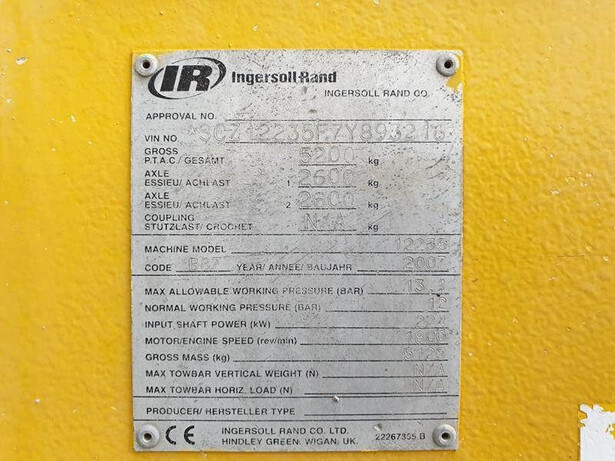 IR Ingersoll-Rand
INGERSOLL RAND CO.
APPROVAL NO.
VIN NO
GROSS
P.T.A.C./ GESAMT 5200 kg
AXLE
ESSIEU/ ACHLAST 1 2600 kg
AXLE
ESSIEU/ ACHLAST 2 2600 kg
COUPLING
STUTZLAST/ CROCHET N/A kg
MACHINE MODEL 12235
CODE YEAR/ ANNEE/ BAUJAHR
MAX ALLOWABLE WORKING PRESSURE (BAR)
NORMAL WORKING PRESSURE (BAR) 12
INPUT SHAFT POWER (kW)
MOTOR/ENGINE SPEED (rev/min)
GROSS MASS (kg)
MAX TOWBAR VERTICAL WEIGHT (N) N/A
MAX TOWBAR HORIZ. LOAD (N) N/A
PRODUCER/ HERSTELLER TYPE
CE INGERSOLL RAND CO. LTD.
HINDLEY GREEN, WIGAN, UK. 22267335 B